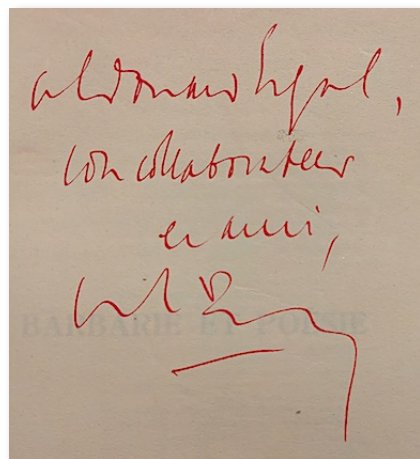 à Edouard
son collaborateur
et ami,
BARBARIE ET POÉSIE